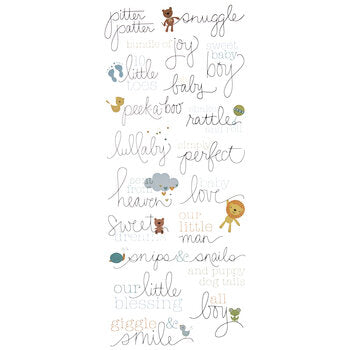 pitter patter
snuggle
bundle of joy
sweet baby boy
little toes
baby
peek-a-boo
rattle
lullaby
simply perfect
sent from heaven
baby love
sweet dreams
our little man
snips & snails
and puppy dog tails
our little blessing
all boy
giggle & smile